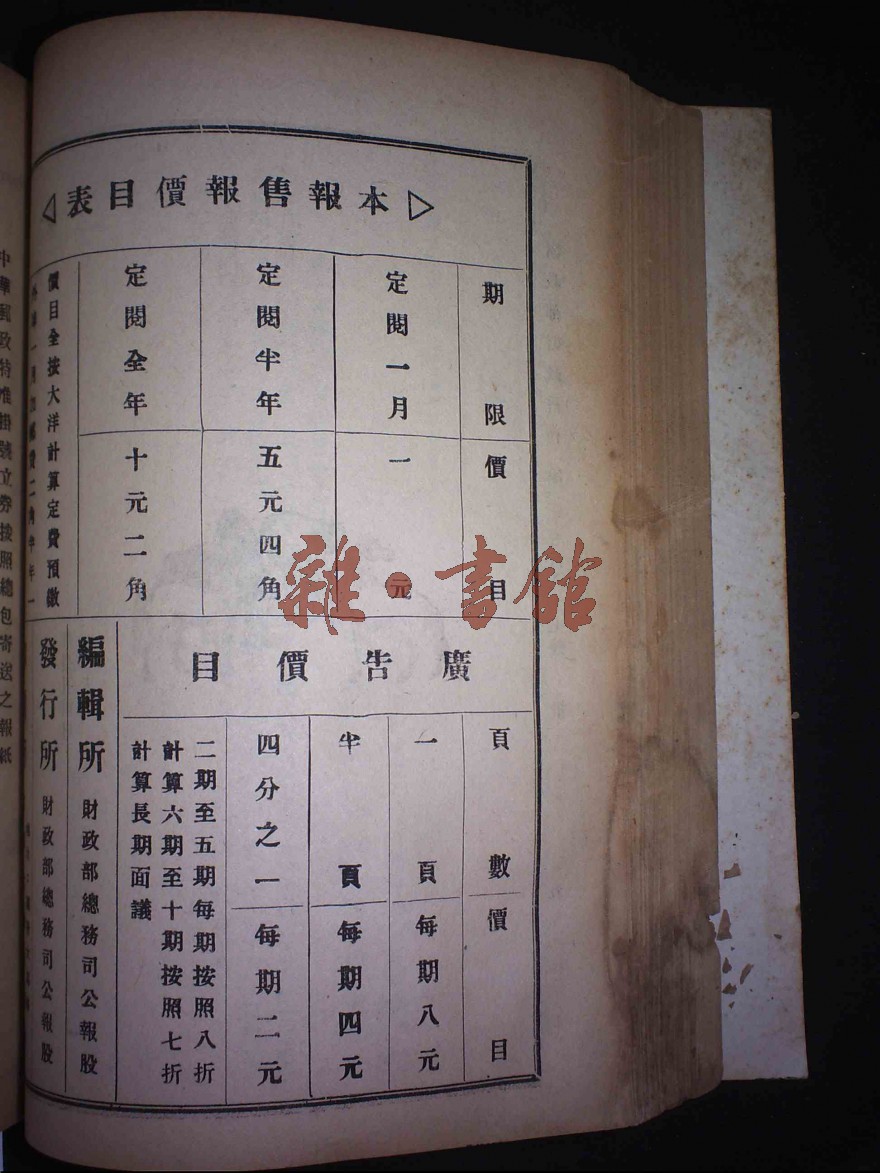 本報售報價目表
期限 價目
定閱一月 一元
定閱半年 五元四角
定閱全年 十元二角
價目全按大洋計算定費預繳
廣告價目
頁數 價目
一頁 每期八元
半頁 每期四元
四分之一 每期二元
二期至五期每期按照八折
計算六期至十期按照七折
計算長期面議
編輯所 財政部總務司公報股
發行所 財政部總務司公報股
中華郵政特准掛號立券按照總包寄送之報紙
雜·書館